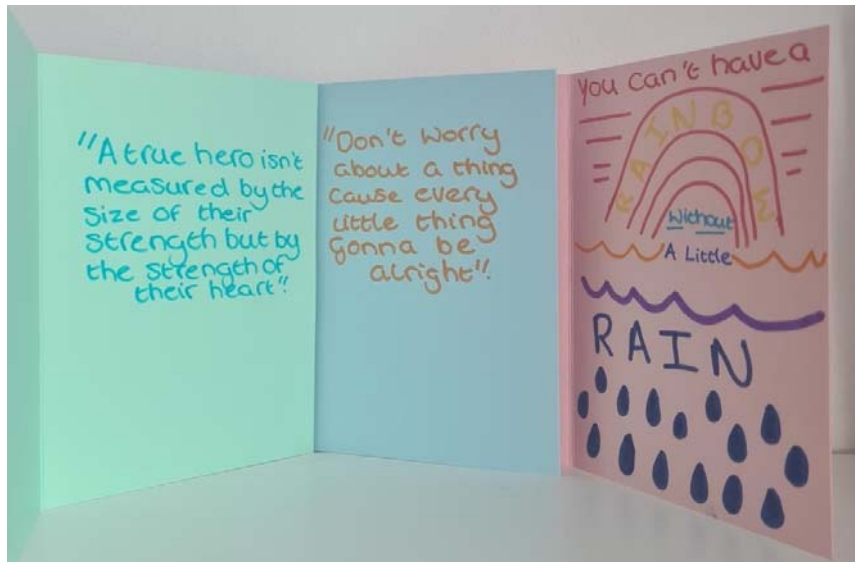 "A true hero isn't
measured by the
size of their
strength but by
the strength of
their heart".
"Don't worry
about a thing
cause every
little thing
gonna be
alright".
You can't have a
RAINBOW
Without
A Little
RAIN